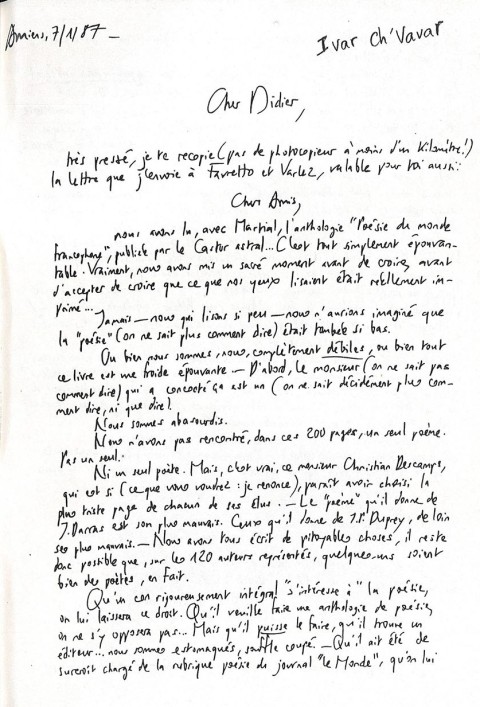 Amiens, 7/1/87 _
Ivar Ch'Vavar
Cher Didier,
très pressé, je te recopie (pas de photocopieur à moins d'un kilomètre!)
la lettre que j'envoie à Favretto et Varlez, valable pour toi aussi:
Chers Amis,
nous avons lu, avec Martial, l'anthologie "Poésie du monde
francophone", publiée par le Castor astral... C'est tout simplement épouvan-
table. Vraiment, nous avons mis un sacré moment avant de croire, avant
d'accepter de croire que ce que nos yeux lisaient était réellement im-
primé...
Jamais — nous qui lisons si peu — nous n'aurions imaginé que
la "poésie" (on ne sait plus comment dire) était tombée si bas.
Ou bien nous sommes, nous, complètement débiles, ou bien tout
ce livre est une froide épouvante — D'abord, le monsieur (on ne sait pas
comment dire) qui a concocté ça est un (on ne sait décidément plus com-
ment dire, ni que dire).
Nous sommes abasourdis.
Nous n'avons pas rencontré, dans ces 200 pages, un seul poème.
Pas un seul.
Ni un seul poète. Mais, c'est vrai, ce monsieur Christian Descamps,
qui est si (ce que vous voudrez : je renonce), paraît avoir choisi la
plus triste page de chacun de ses élus. — Le "poème" qu'il donne de
J. Darras est son plus mauvais. Ceux qu'il donne de J.P. Duprey, de loin
ses plus mauvais. — Nous avons tous écrit de pitoyables choses, il reste
donc possible que, sur les 120 auteurs représentés, quelques-uns soient
bien des poètes, en fait.
Qu'un con rigoureusement intégral "s'intéresse à" la poésie,
on lui laissera ce droit. Qu'il veuille faire une anthologie de poésie,
on ne s'y opposera pas... Mais qu'il puisse le faire, qu'il trouve un
éditeur... nous sommes estomaqués, souffle coupé. — Qu'il ait été de
surcroît chargé de la rubrique poésie du journal "le Monde", qu'on lui